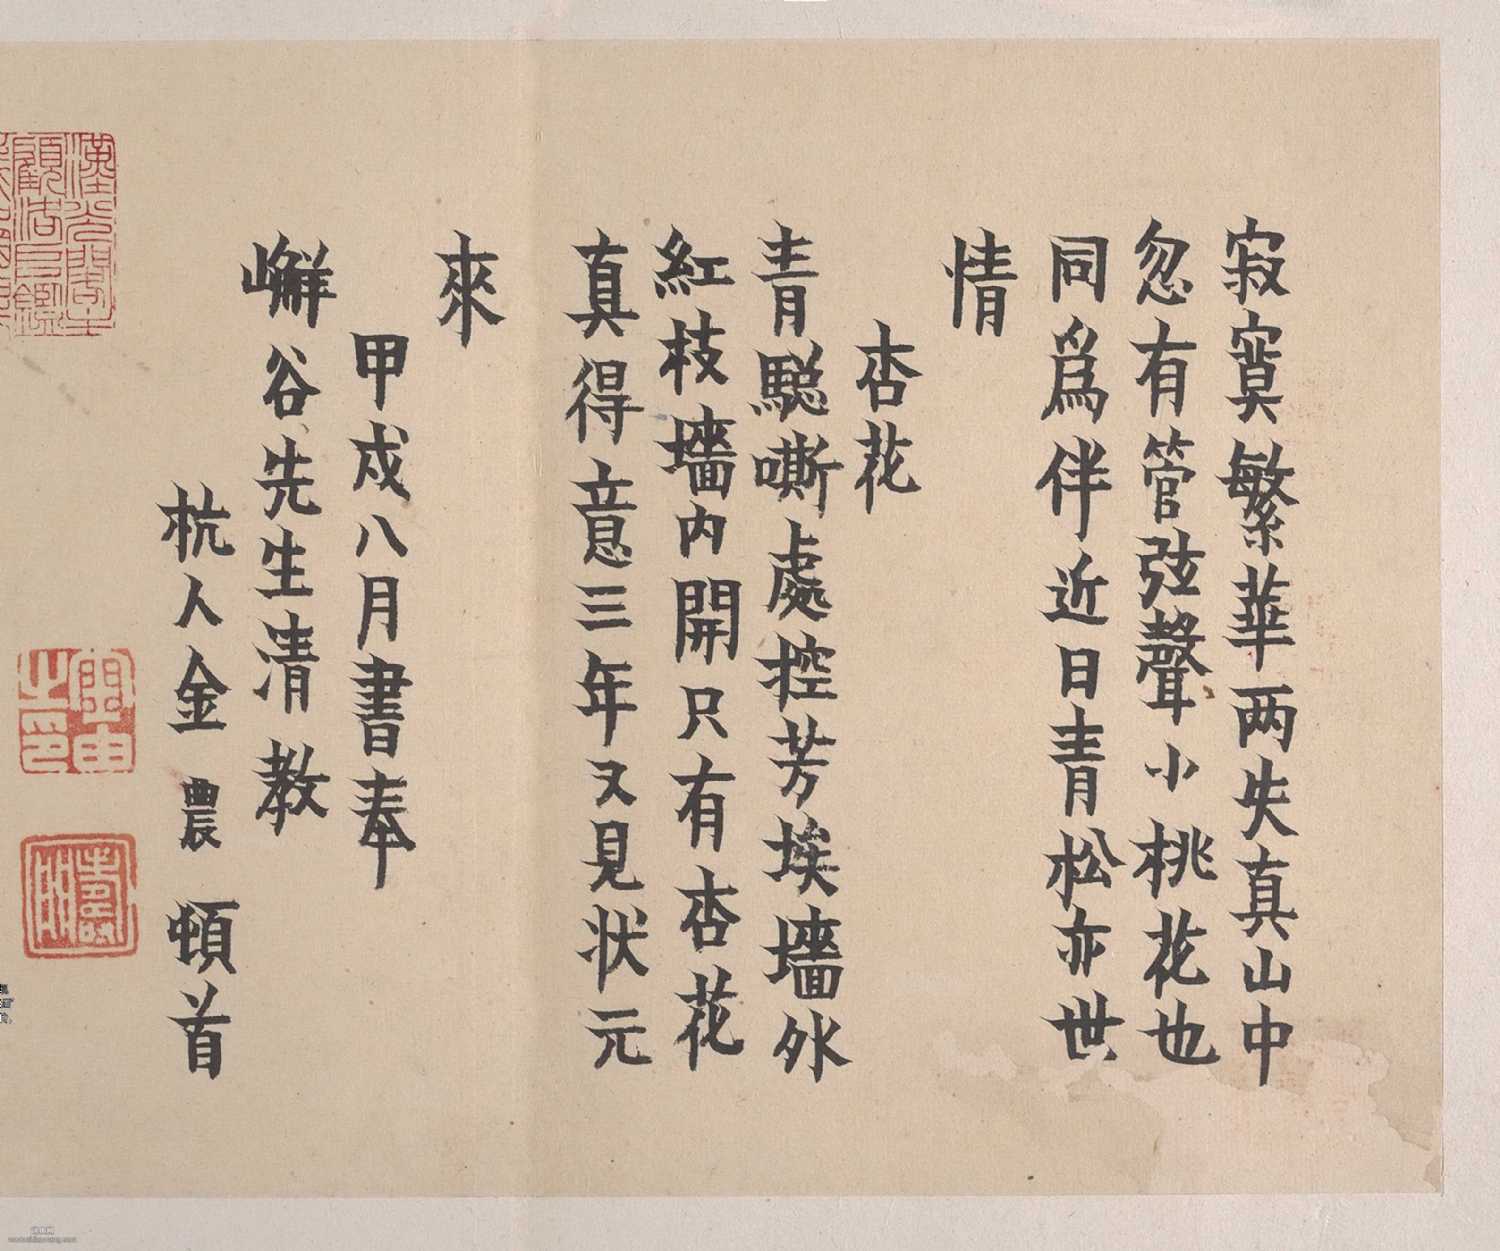 寂寞繁華两失真山中
忽有管弦聲小桃花也
同爲伴近日青松亦世
情
杏花
青驄嘶處控芳埃墻外
紅枝墻内開只有杏花
真得意三年又見状元
來
甲戌八月書奉
嶰谷先生清教
杭人金農頓首
漢光閣主
顧洛阜鑑